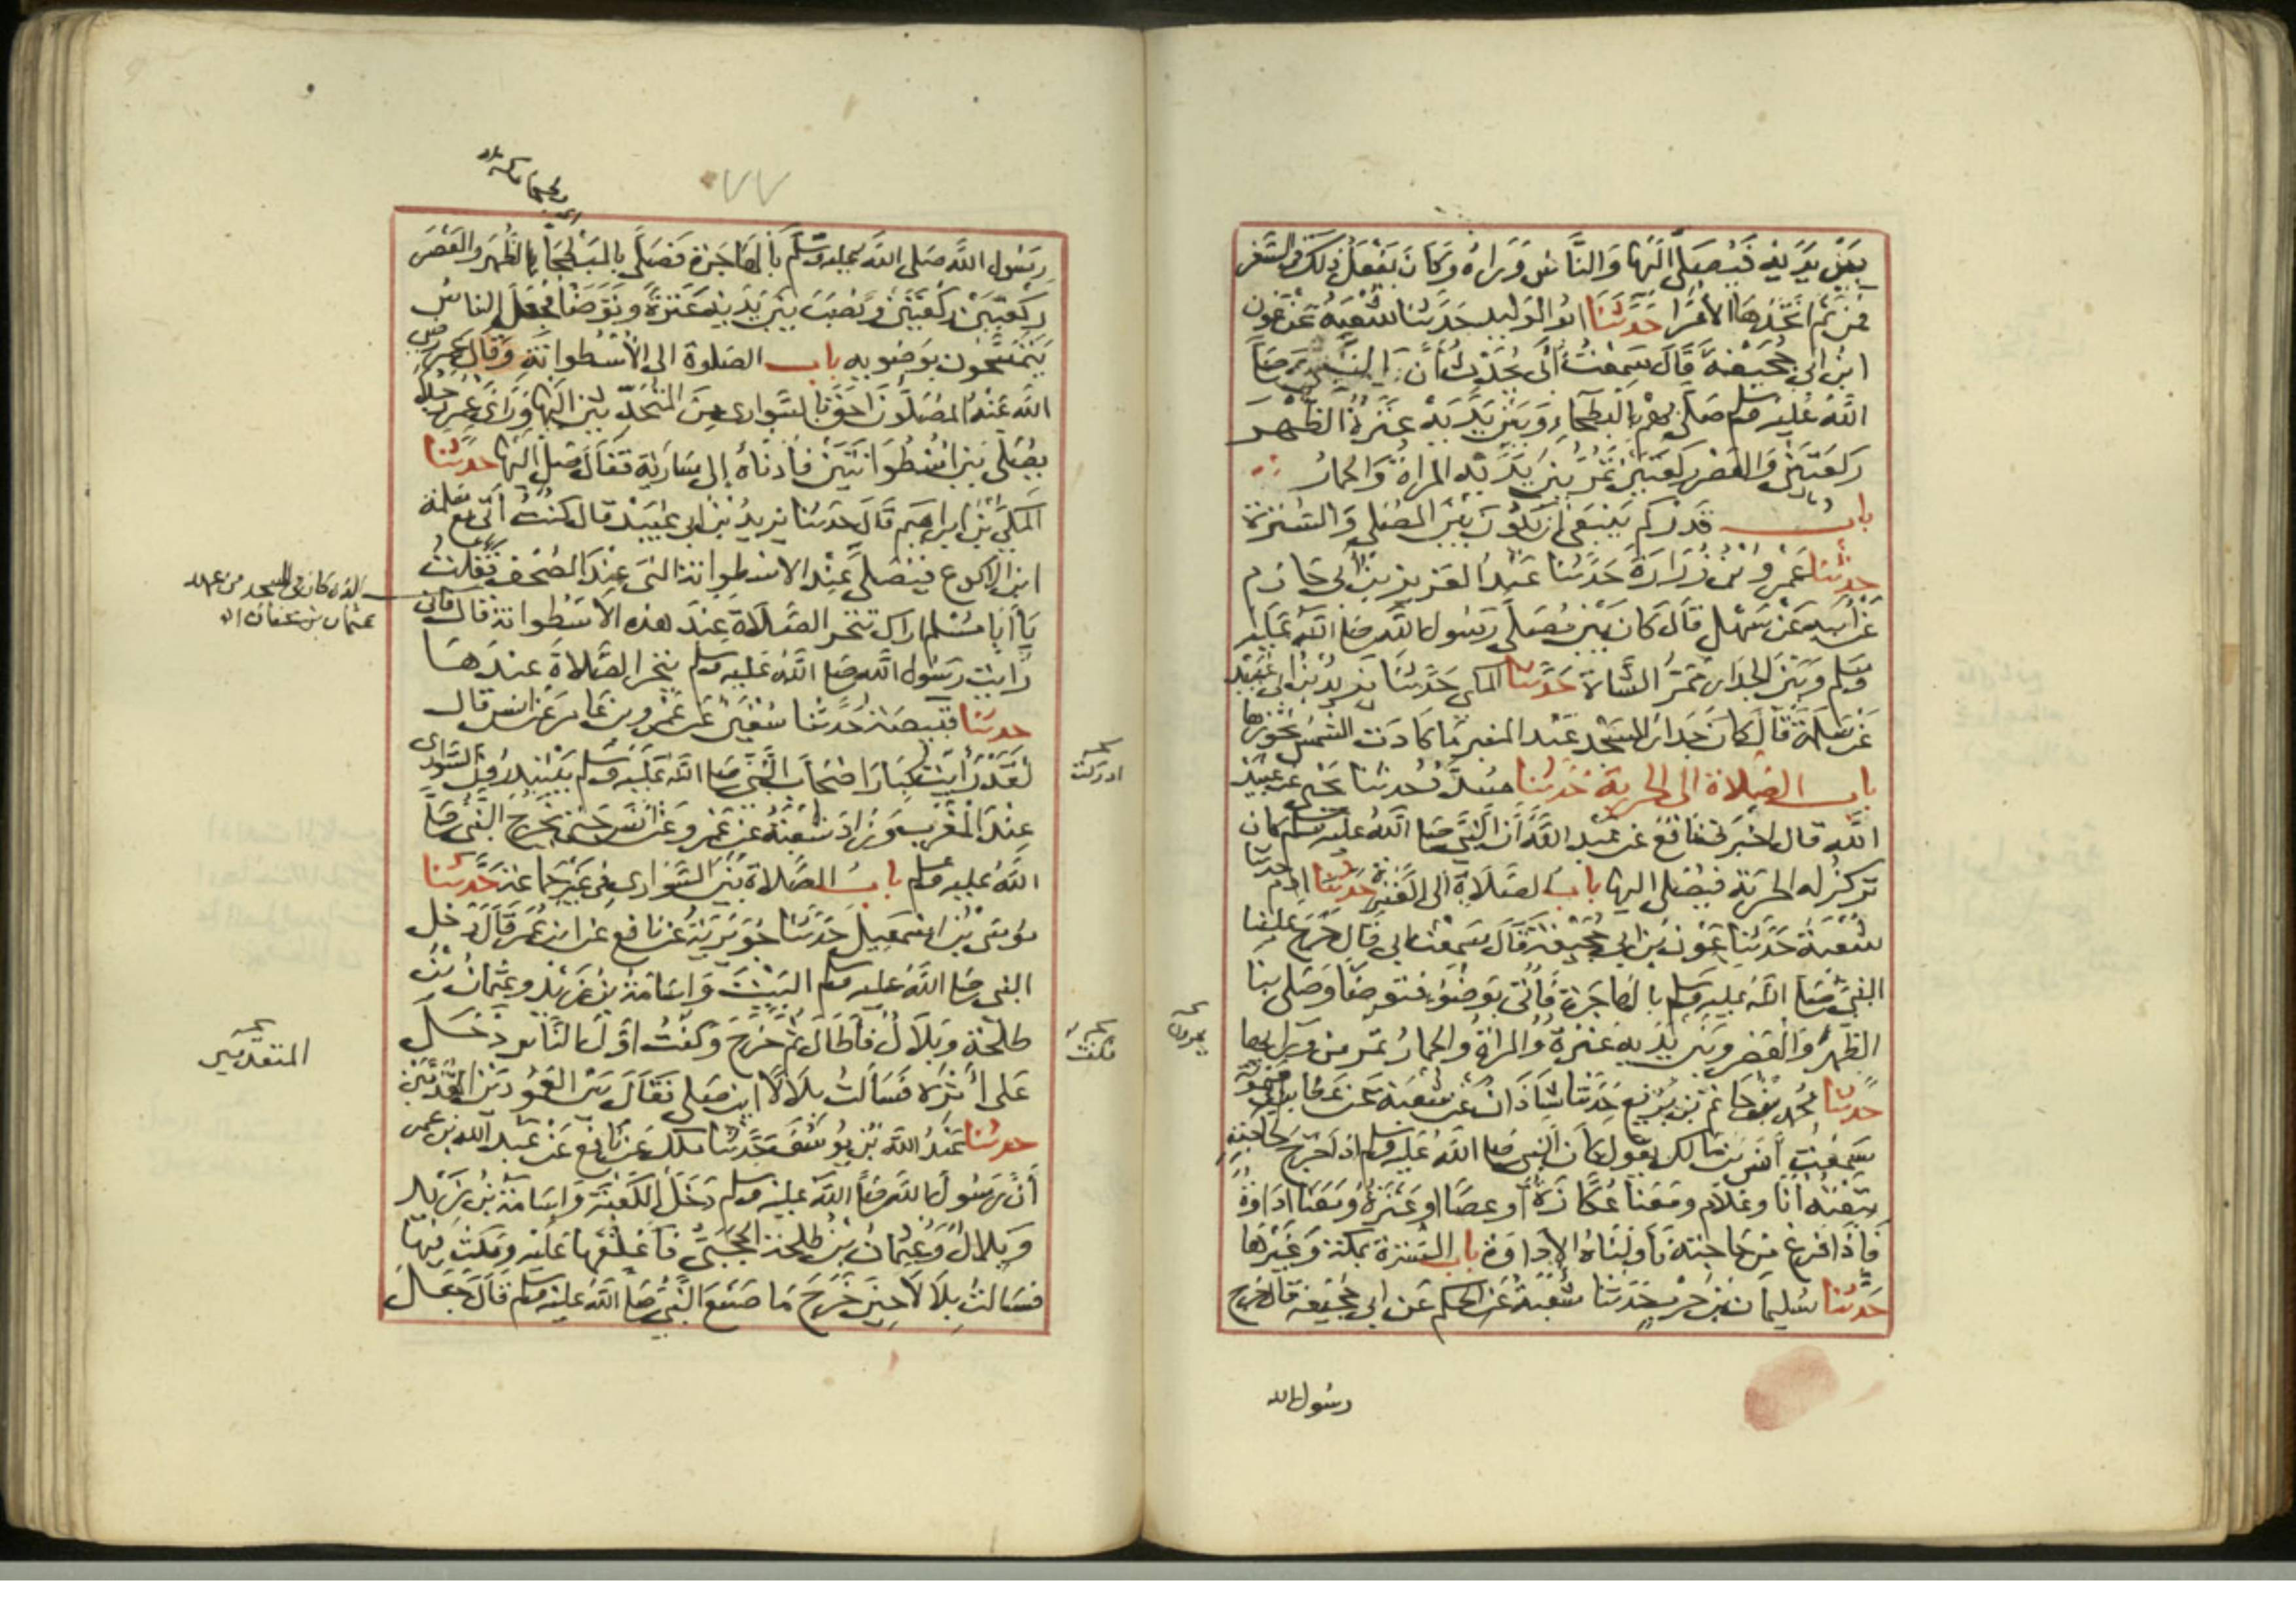 بين يديه فيصلي اليها والناس وراءه وكان يفعل ذلك في السفر
فمن ثم اتخذها الامرا حدثنا ابو الوليد حدثنا شعبة عن عون
ابن ابي جحيفة قال سمعت ابي يحدث ان النبي صلى
الله عليه وسلم صلى بهم بالبطحاء وبين يديه عنزة الظهر
ركعتين والعصر ركعتين تمر بين يديه المراة والحمار
باب قدركم ينبغي ان يكون بين المصلى والسترة
حدثنا عمرو بن زرارة حدثنا عبد العزيز بن ابي حازم
عن ابيه عن سهل قال كان بين مصلى رسول الله صلى الله عليه
وسلم وبين الجدار ممر الشاة حدثنا المكي حدثنا يزيد بن ابي عبيد
عن سلمة قال كان جدار المسجد عند المنبر ما كادت الشمس تجوزها
باب الصلاة الى الحربة حدثنا مسدد حدثنا يحيى عن عبيد
الله قال اخبرني نافع عن عبد الله ان النبي صلى الله عليه وسلم كان
تركز له الحربة فيصلي اليها باب الصلاة الى العنزة حدثنا ادم حدثنا
شعبة حدثنا عون بن ابي جحيفة قال سمعت ابي قال خرج علينا
النبي صلى الله عليه وسلم بالهاجرة فاتي بوضوء فتوضا وصلى بنا
الظهر والعصر وبين يديه عنزة والمراة والحمار تمر من ورايها
يمرون
حدثنا محمد بن حاتم بن بزيع حدثنا شاذان عن شعبة عن عطا بن ابي ميمونة
سمعت انس بن مالك يقول كان النبي صلى الله عليه وسلم اذا خرج لحاجته
تبعته انا وغلام ومعنا عكازة او عصا او عنزة ومعنا اداوة
فاذا فرغ من حاجته ناولناه الاداوة باب السترة بمكة وغيرها
حدثنا سليمان بن حرب حدثنا شعبة عن الحكم عن ابي جحيفة قال خرج
رسول الله
٧٧
رسول الله صلى الله عليه وسلم بالهاجرة فصلى بالبطحا بالظهر والعصر
ركعتين ركعتين ونصب بين يديه عنزة وتوضا فجعل الناس
يتمسحون بوضوبه باب الصلوة الى الاسطوانة وقال عمر رضي
الله عنه المصلون احق بالسواري من المتحدثين اليها وراى عمر رجلا
يصلي بين اسطوانتين فادناه الى سارية فقال صل اليها حدثنا
المكي بن ابراهيم قال حدثنا يزيد بن ابي عبيد قال كنت اتي مع سلمة
ابن الاكوع فيصلي عند الاسطوانة التي عند المصحف فقلت
يا ابا مسلم اراك تتحر الصلاة عند هذه الاسطوانة قال فاني
رايت رسول الله صلى الله عليه وسلم يتحر الصلاة عندها
حدثنا قبيصة حدثنا سفين عن عمرو بن عامر عن انس قال
لقد رايت كبار اصحاب النبي صلى الله عليه وسلم يبتدرون السواري
عند المغرب وزاد شعبة عن عمرو عن انس حتى يخرج النبي صلى
الله عليه وسلم باب الصلاة بين السواري في غير جماعة حدثنا
موسى بن اسمعيل حدثنا جويرية عن نافع عن ابن عمر قال دخل
النبي صلى الله عليه وسلم البيت واسامة بن زيد وعثمان بن
طلحة وبلال فاطال ثم خرج وكنت اول الناس دخل
على اثره فسالت بلالا اين صلى فقال بين العمودين المقدمين
حدثنا عبد الله بن يوسف حدثنا ملك عن نافع عن عبد الله بن عمر
ان رسول الله صلى الله عليه وسلم دخل الكعبة واسامة بن زيد
وبلال وعثمان بن طلحة الحجبي فاغلقها عليه ومكث فيها
فسالت بلالا حين خرج ما صنع النبي صلى الله عليه وسلم قال جعل
الذي كان في المسجد من عهد
عثمان بن عفان
ادركت
المتقدمين